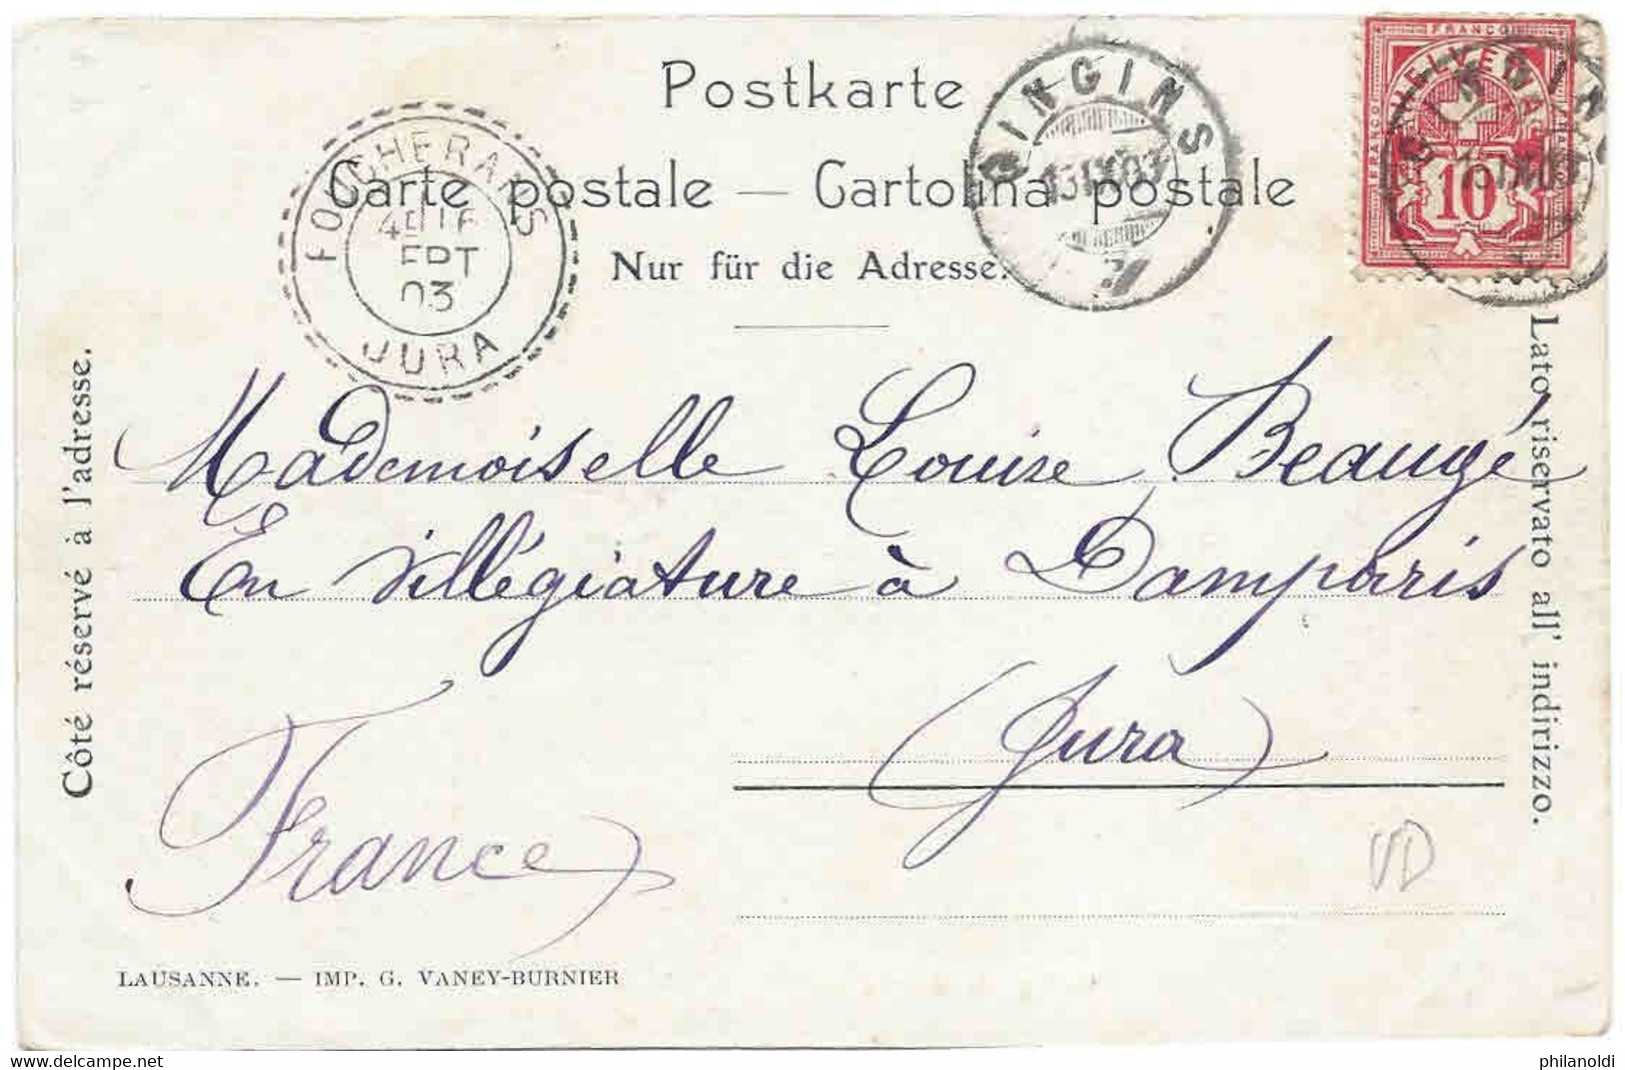 Postkarte
Carte postale — Cartolina postale
Nur für die Adresse.
FOUCHERANS
16
SEPT
03
JURA
GINGINS
13 IX 03
FRANCO
HELVETIA
FRANCO
10
GINGINS
Côté réservé à l'adresse.
Lato riservato all' indirizzo.
Mademoiselle Louise Beaugé
En villégiature à Damparis
(Jura)
France
VD
LAUSANNE. — IMP. G. VANEY-BURNIER
delcampe.net
philanoldi